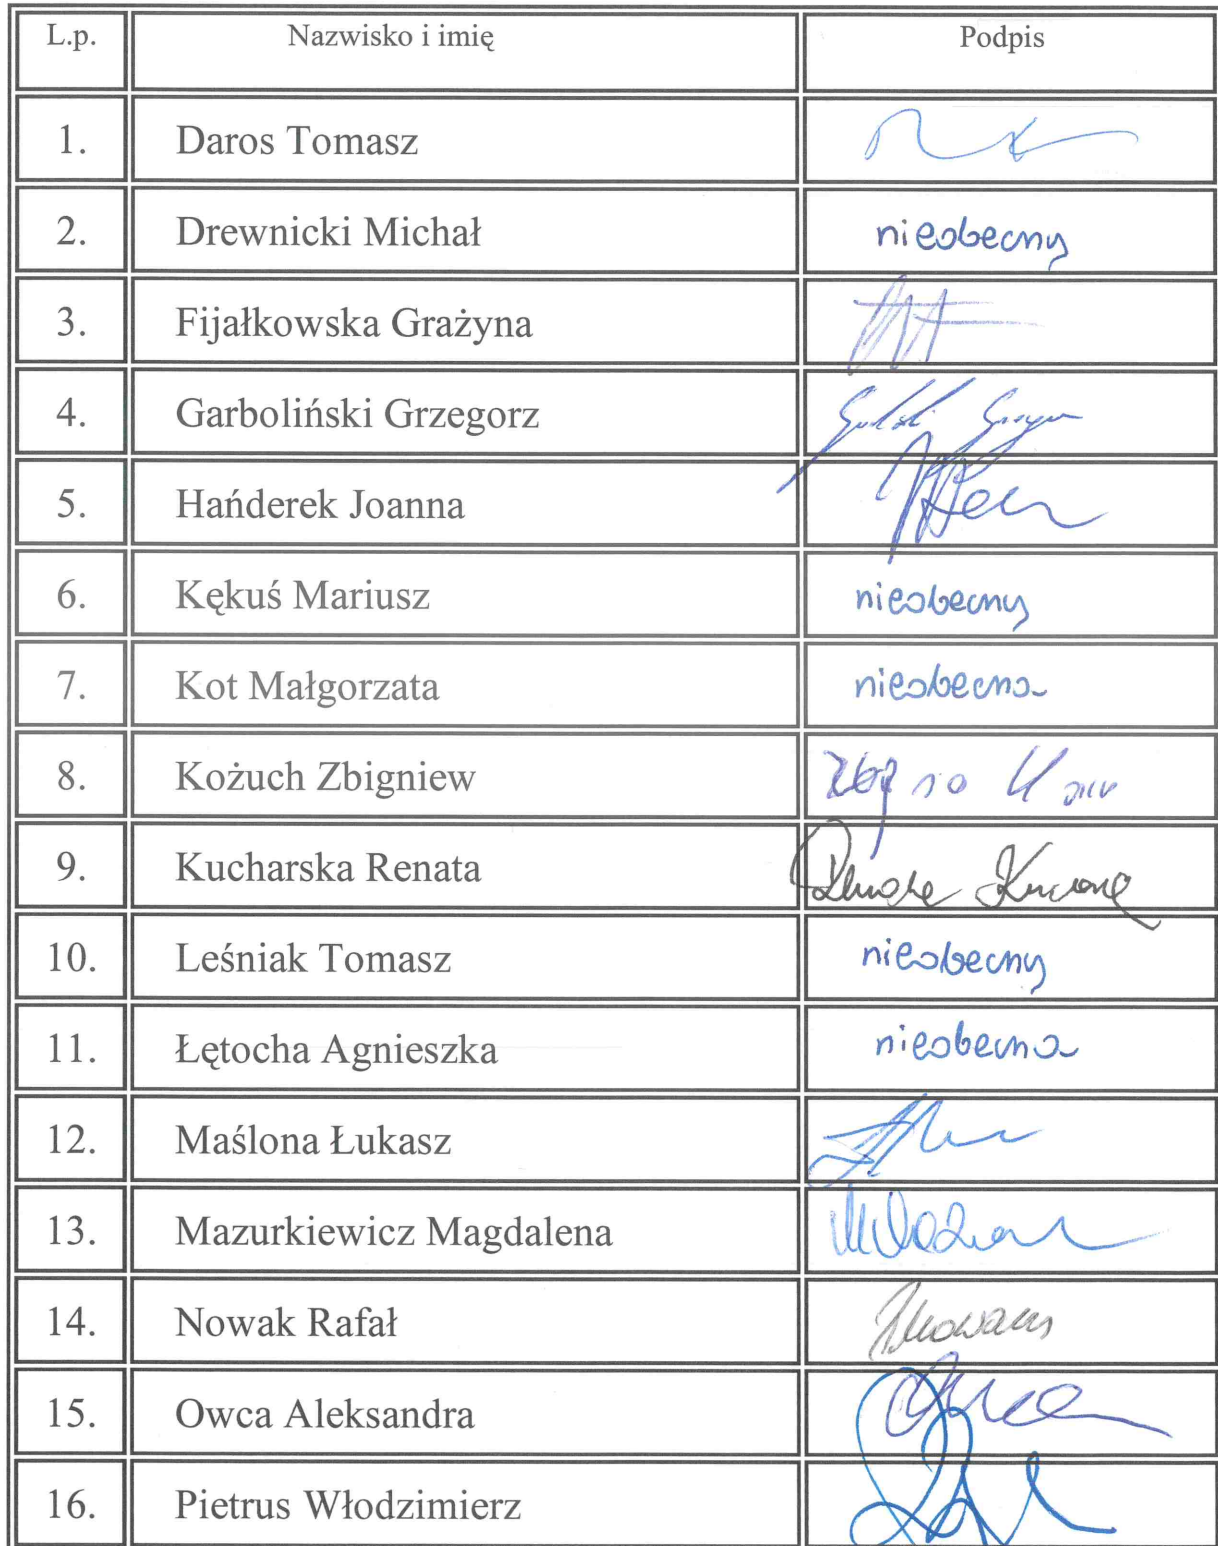 L.p. Nazwisko i imię Podpis
1. Daros Tomasz
2. Drewnicki Michał nieobecny
3. Fijałkowska Grażyna
4. Garboliński Grzegorz
5. Hańderek Joanna
6. Kękuś Mariusz nieobecny
7. Kot Małgorzata nieobecna
8. Kożuch Zbigniew
9. Kucharska Renata
10. Leśniak Tomasz nieobecny
11. Łętocha Agnieszka nieobecna
12. Maślona Łukasz
13. Mazurkiewicz Magdalena
14. Nowak Rafał
15. Owca Aleksandra
16. Pietrus Włodzimierz